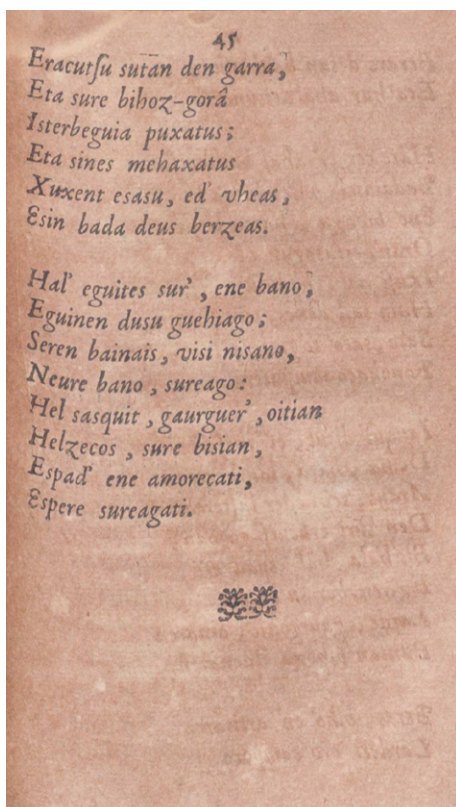 45
Eracutſu sutan̄ den garra,
Eta sure bihoz-gorâ
Isterbeguia puxatus;
Eta sines mehaxatus
Xuxent esasu, ed' vheas,
Esin bada deus berzeas.
Hal' eguites sur', ene bano,
Eguinen dusu guehiago;
Seren bainais, visi nisano,
Neure bano, sureago:
Hel sasquit, gaurguer', oitian
Helzecos, sure bisian,
Espad' ene amorecati,
Espere sureagati.